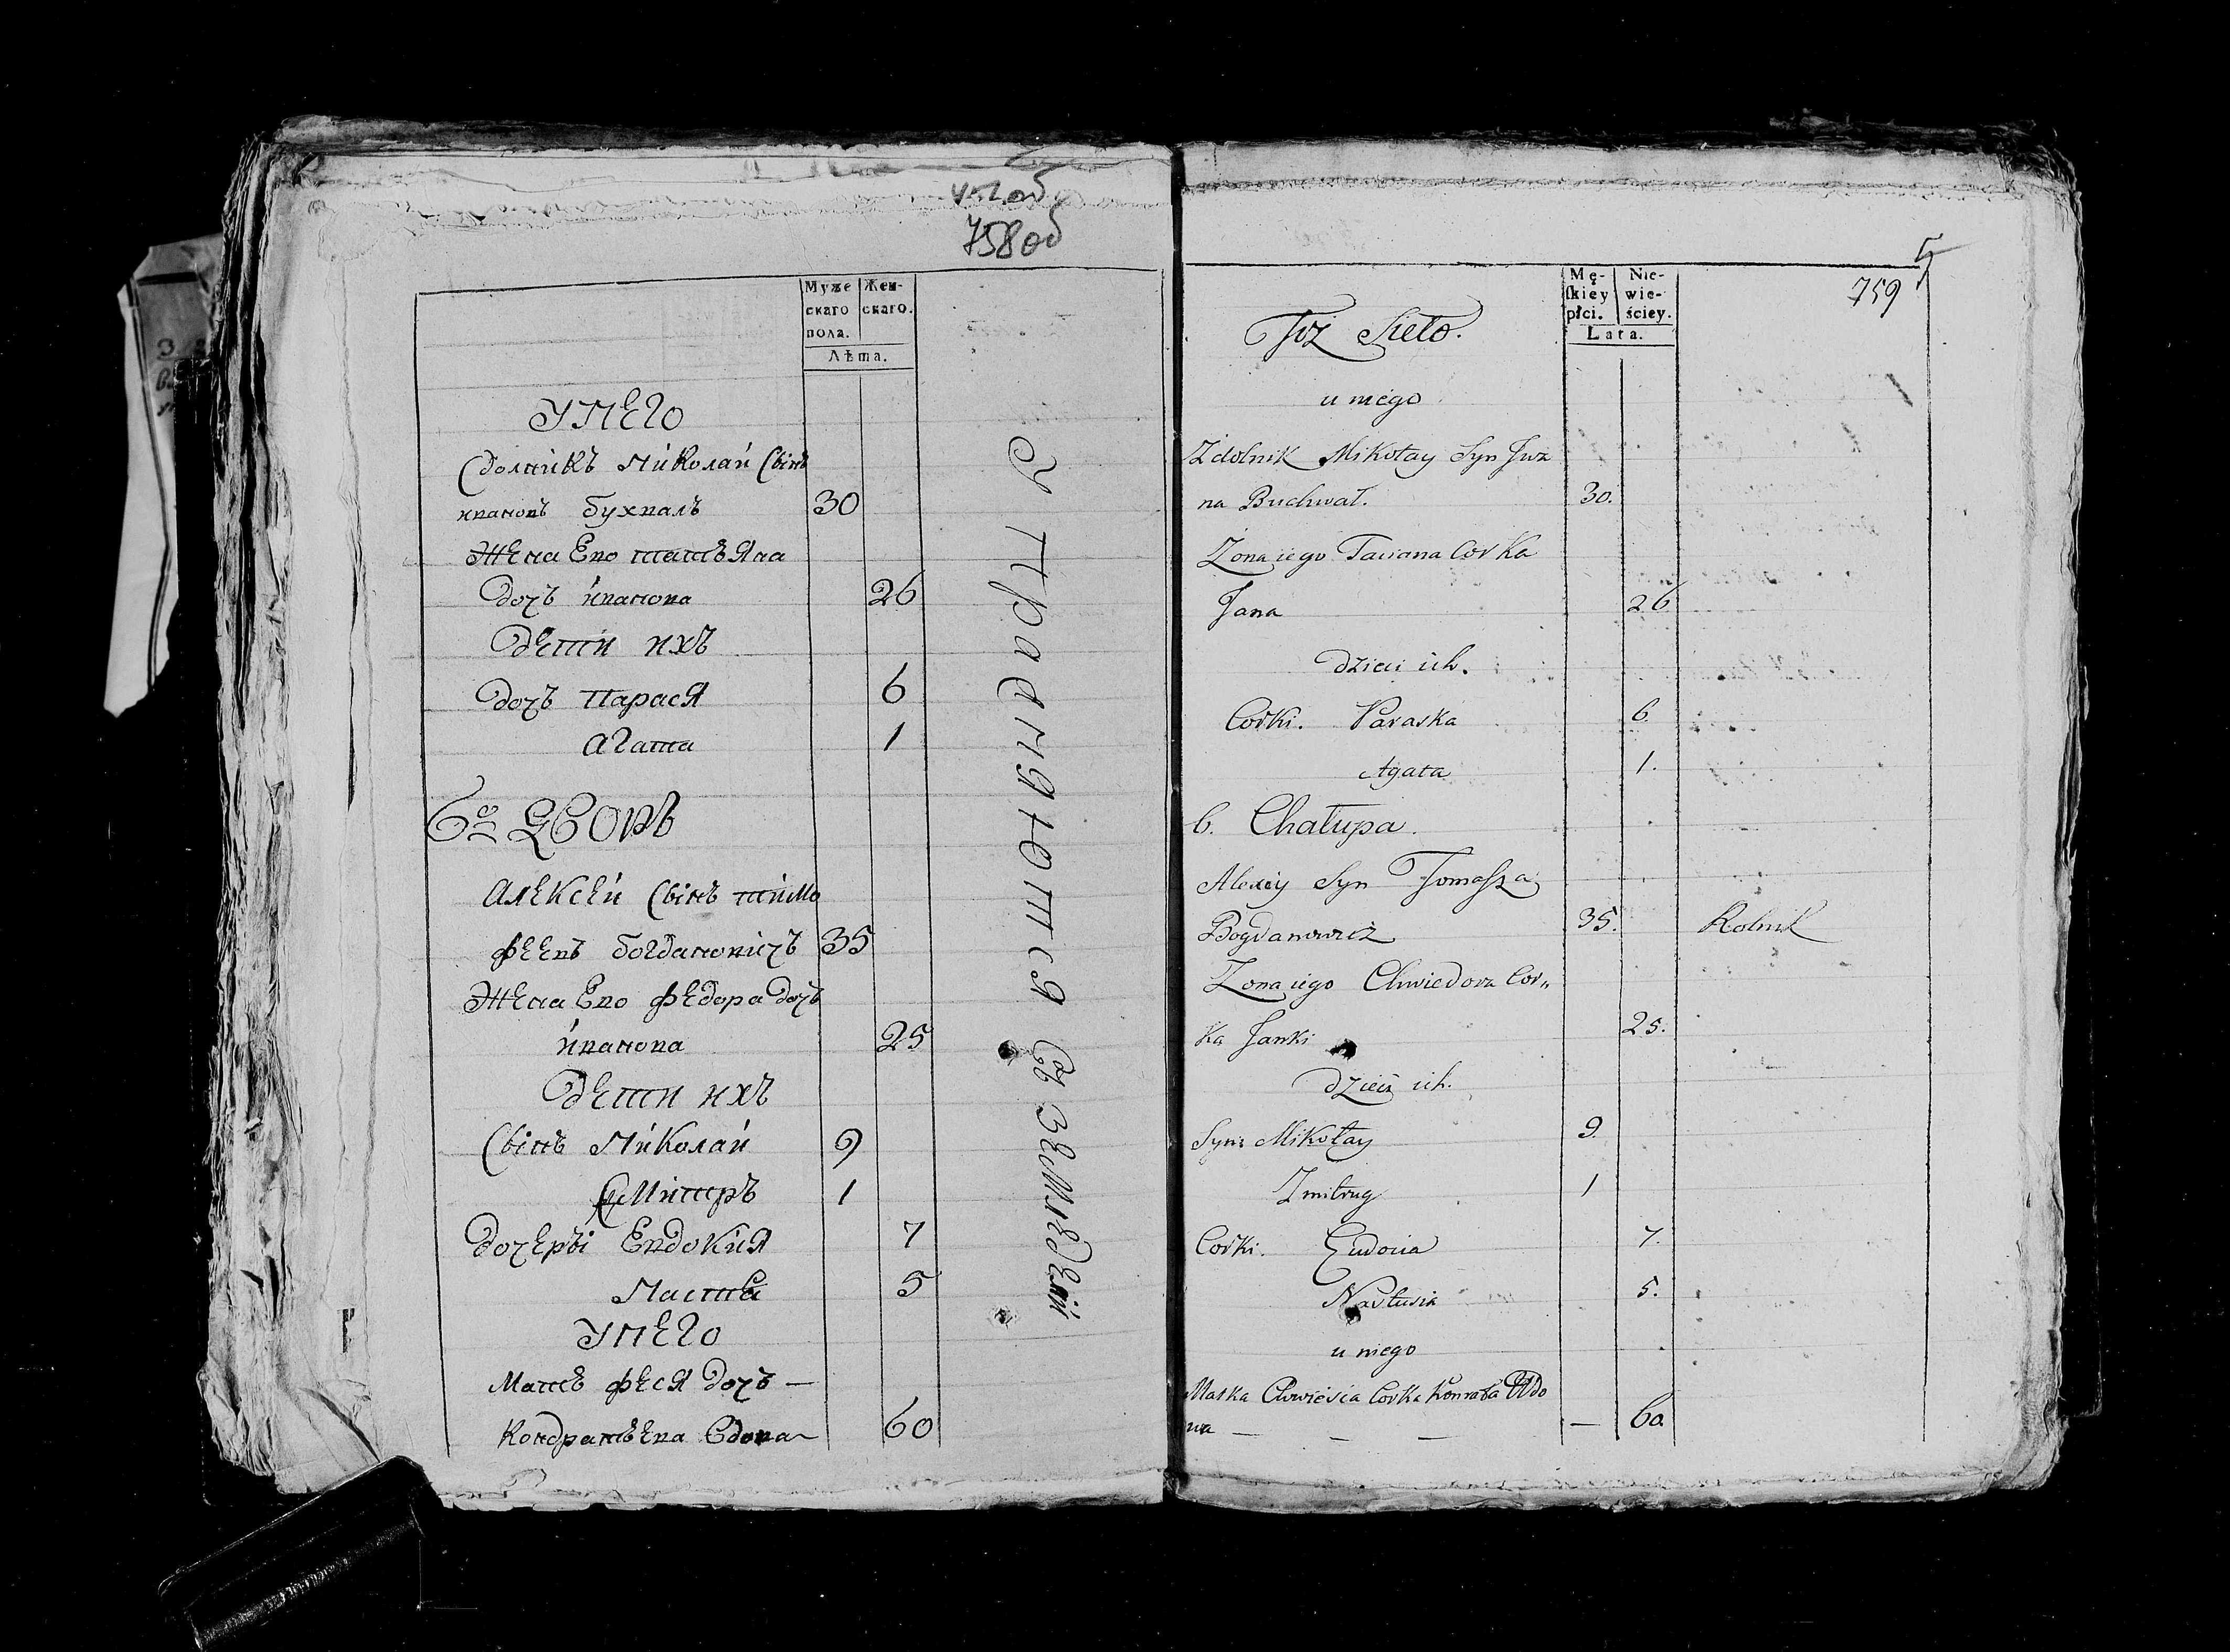 758об
Муже
скаго
пола.
Жен-
скаго.
Лѣта.
У него
Сдолникъ Николай Сынъ
ивановъ бухвалъ 30
Жена Ево татьяна
дочъ ивanова 26
дети ихъ
дочъ Парася 6
агата 1
6й Дворъ
Алексей Сынъ тимо
феевъ богдановичъ 35
Жена Ево федора дочъ
иванова 25
дети ихъ
Сынъ Николай 9
Дмитръ 1
дочеры Евдокия 7
Настя 5
У него
Мать феся дочъ —
Кондратьева вдова 60
Упражняются в земледелии
5
759
Mę-
skiey
płci.
Nie-
wie-
ściey.
Lata.
Toż Sieło.
u niego
Zdolnik Mikołay Syn Iwa
na Buchwał. 30.
Zona iego Taciana Corka
Jana 26
dzieci ich.
Corki. Paraska 6
Agata 1.
6. Chałupa.
Alexiy Syn Tomasza
Bogdanowicz 35. Rolnik
Zona iego Chwiedora Cor„
ka Janki 25.
dzieci ich.
Syn: Mikołay 9
Zmitrug 1
Corki. Eudocia 7.
Nastusia 5.
u niego
Matka Chwiesia Corka Konrata Wdo
wa — — — — 60